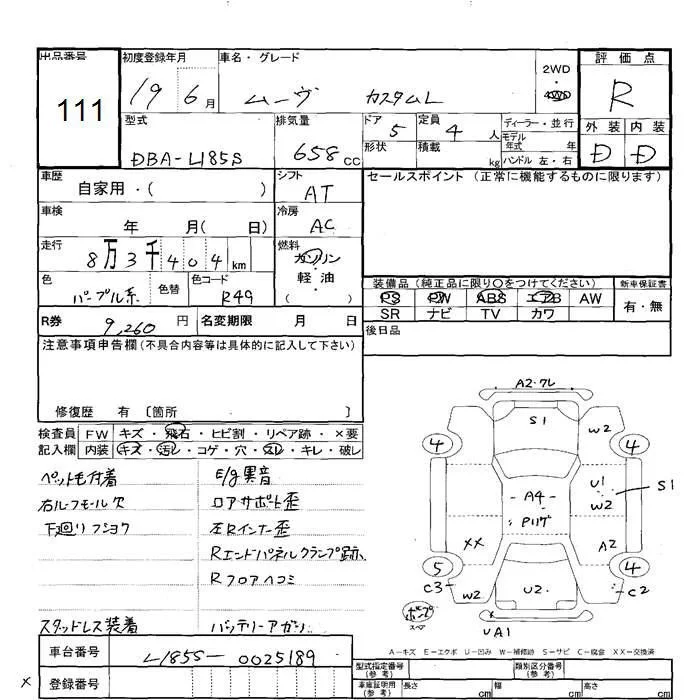 出品番号 初度登録年月 車名・グレード 2WD 評価点
111 19 6月 ムーヴ カスタムL 4WD R
型式 排気量 ドア 5 定員 4人 ディーラー・並行 外装 内装
DBA-L185S 658CC 形状 積載 kg モデル年式 年 D D
ハンドル 左・右
車歴 自家用・( ) シフト AT セールスポイント (正常に機能するものに限ります)
車検 年 月( 日) 冷房 AC
走行 8万3千404km 燃料 ガソリン
軽・油
( )
色 パープル系 色替 色コード R49
装備品(純正品に限り○をつけてください) 新車保証書
PS PW ABS エアB AW 有・無
SR ナビ TV カワ
R券 9,260円 名変期限 月 日 後日品
注意事項申告欄(不具合内容等は具体的に記入して下さい)
修復歴 有 〔箇所 〕
検査員 FW キズ・飛石・ヒビ割・リペア跡・×要
記入欄 内装 キズ・汚レ・コゲ・穴・スレ・キレ・破レ
ペット毛付着 E/g異音
右ルーフモール欠 ロアサポート歪
下廻りフショク 左Rインナー歪
Rエンドパネルクランプ跡
Rフロアヘコミ
スタッドレス装着 バッテリーアガリ
A2・ワレ
S1
W2
4 4
U1 S1
A4 W2
Pハゲ
XX A2
5 4
C3 W2 U2 C2
ボンプ
スペア
UA1
A-キズ E-エクボ U-凹み W-補修跡 S-サビ C-腐食 XX-交換済
車台番号 L185S-0025189
型式指定番号(参考) 類別区分番号(参考)
× 登録番号 車庫証明用(参考) 長さ cm 幅 cm 高さ cm